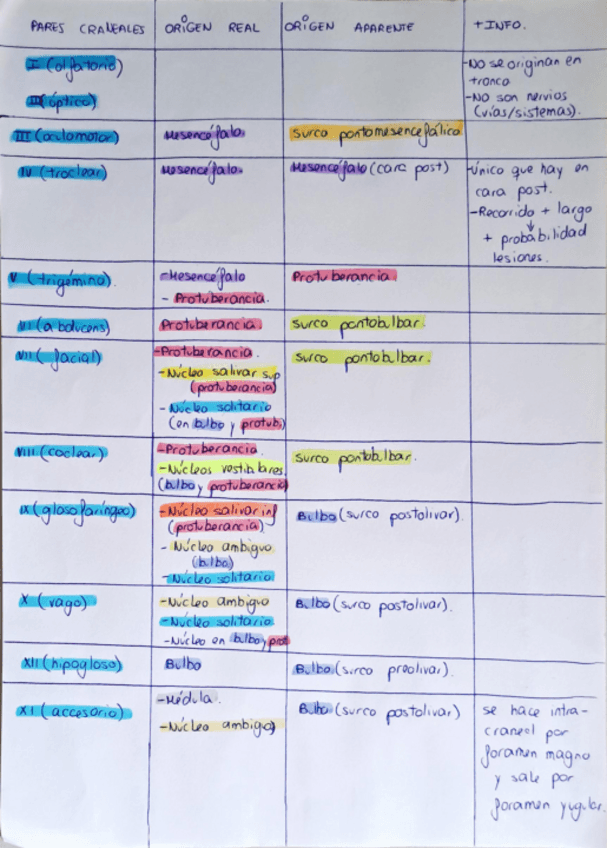 PARES CRANEALES
ORIGEN REAL
ORIGEN APARENTE
+ INFO.
I (olfatorio)
II (óptico)
-No se originan en
tronco
-No son nervios
(vías/sistemas).
III (oculomotor)
Mesencéfalo.
surco pontomesencefálico
IV (troclear)
Mesencéfalo.
Mesencéfalo (cara post)
-Único que hay en
cara post.
-Recorrido + largo
↓
+ probabilidad
lesiones.
V (trigémino).
-Mesencéfalo
- Protuberancia.
Protuberancia.
VI (abducens)
Protuberancia.
surco pontobulbar.
VII (facial)
-Protuberancia.
-Núcleo salivar sup
(protuberancia)
-Núcleo solitario
(en bulbo y protub.)
surco pontobulbar.
VIII (coclear)
-Protuberancia.
-Núcleos vestibulares
(bulbo y protuberancia)
surco pontobulbar.
IX (glosofaríngeo)
-Núcleo salivar inf
(protuberancia)
- Núcleo ambiguo
(bulbo)
-Núcleo solitario
Bulbo (surco postolivar).
X (vago)
-Núcleo ambiguo
-Núcleo solitario
-Núcleo en bulbo y prot
Bulbo (surco postolivar).
XII (hipogloso)
Bulbo
Bulbo (surco preolivar).
XI (accesorio)
-Médula.
-Núcleo ambiguo
Bulbo (surco postolivar)
se hace intra-
craneal por
foramen magno
y sale por
foramen yugular.